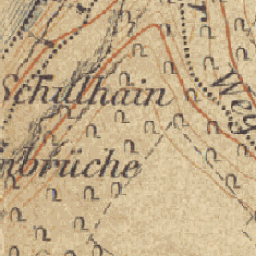 Schillhain
Weg
brüche